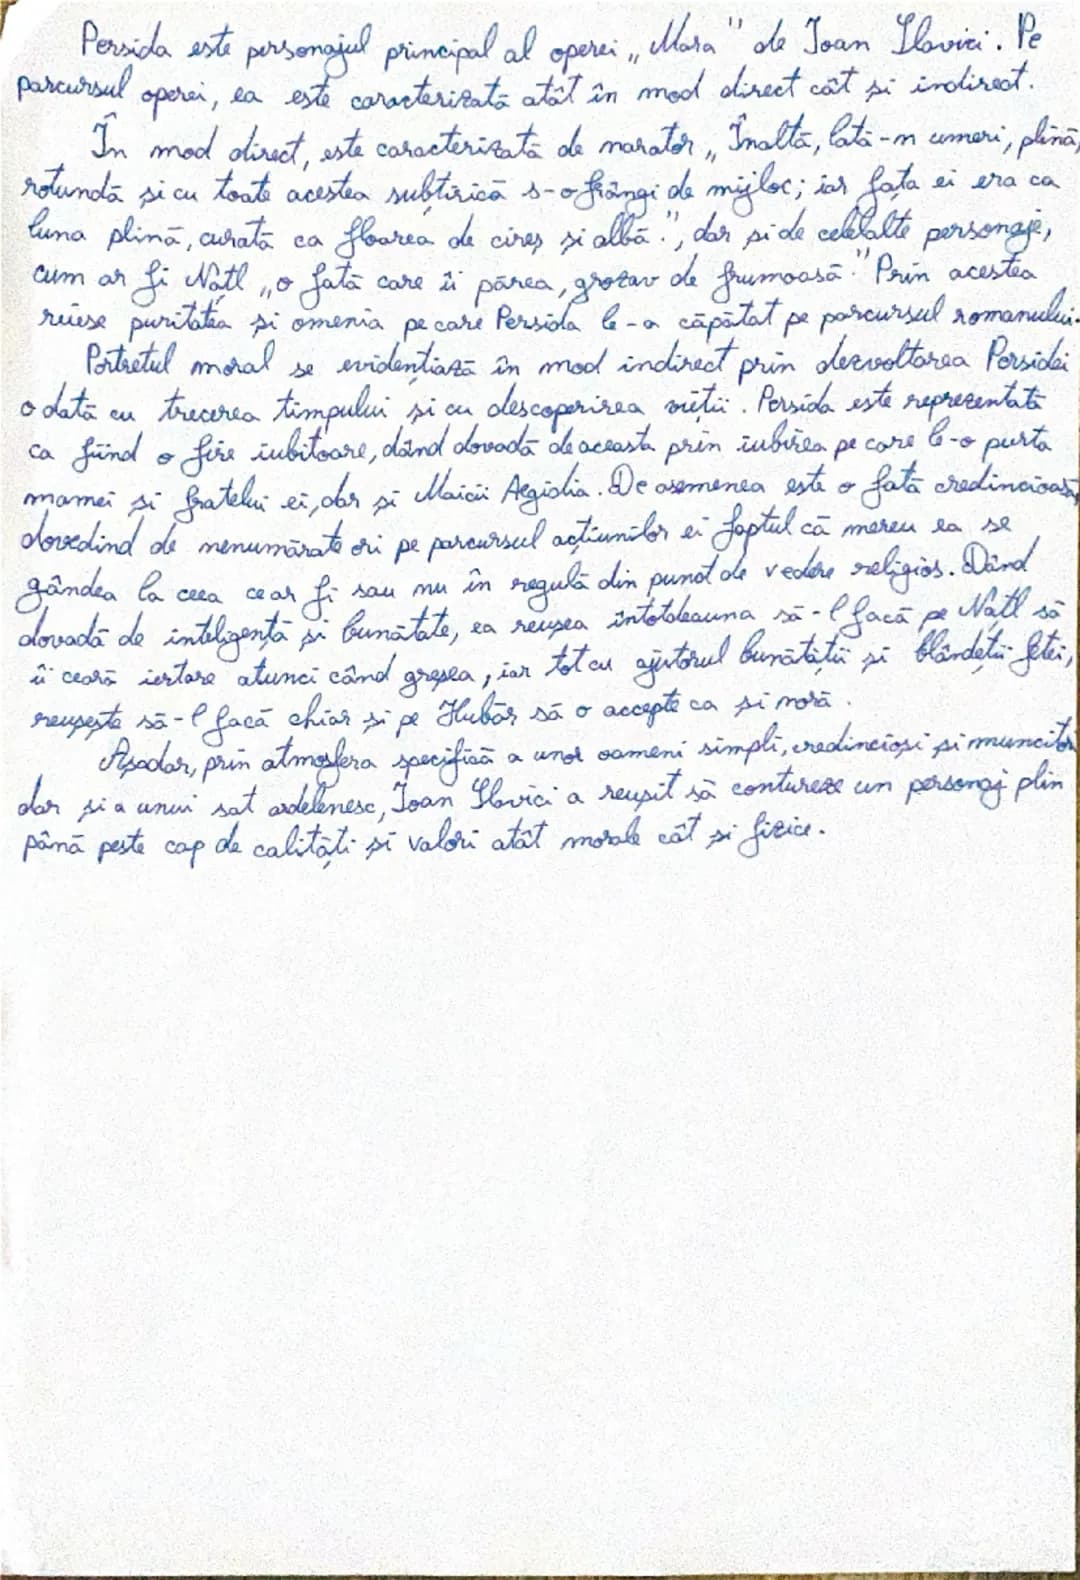 Persida este personajul principal al operei „Mara" de Ioan Slavici. Pe
parcursul operei, ea este caracterizată atât în mod direct cât și indirect.
În mod direct, este caracterizată de narator „Înaltă, lată-n umeri, plină,
rotundă și cu toate acestea subțirică s-o frângi de mijloc; iar fața ei era ca
luna plină, curată ca floarea de cireș și albă.", dar și de celelalte personaje,
cum ar fi Națl „o fată care îi părea, grozav de frumoasă." Prin acestea
reiese puritatea și omenia pe care Persida le-a căpătat pe parcursul romanului.
Portretul moral se evidențiază în mod indirect prin dezvoltarea Persidei
o dată cu trecerea timpului și cu descoperirea vieții. Persida este reprezentată
ca fiind o fire iubitoare, dând dovadă de aceasta prin iubirea pe care le-o purta
mamei și fratelui ei, dar și Maicii Aegidia. De asemenea este o fată credincioasă,
dovedind de nenumărate ori pe parcursul acțiunilor ei faptul că mereu ea se
gândea la ceea ce ar fi sau nu în regulă din punct de vedere religios. Dând
dovadă de inteligență și bunătate, ea reușea întotdeauna să-l facă pe Națl să
îi ceară iertare atunci când greșea, iar tot cu ajutorul bunătății și blândeții fetei,
reușește să-l facă chiar și pe Hubăr să o accepte ca și noră.
Așadar, prin atmosfera specifică a unor oameni simpli, credincioși și muncitori
dar și a unui sat ardelenesc, Ioan Slavici a reușit să contureze un personaj plin
până peste cap de calități și valori atât morale cât și fizice.